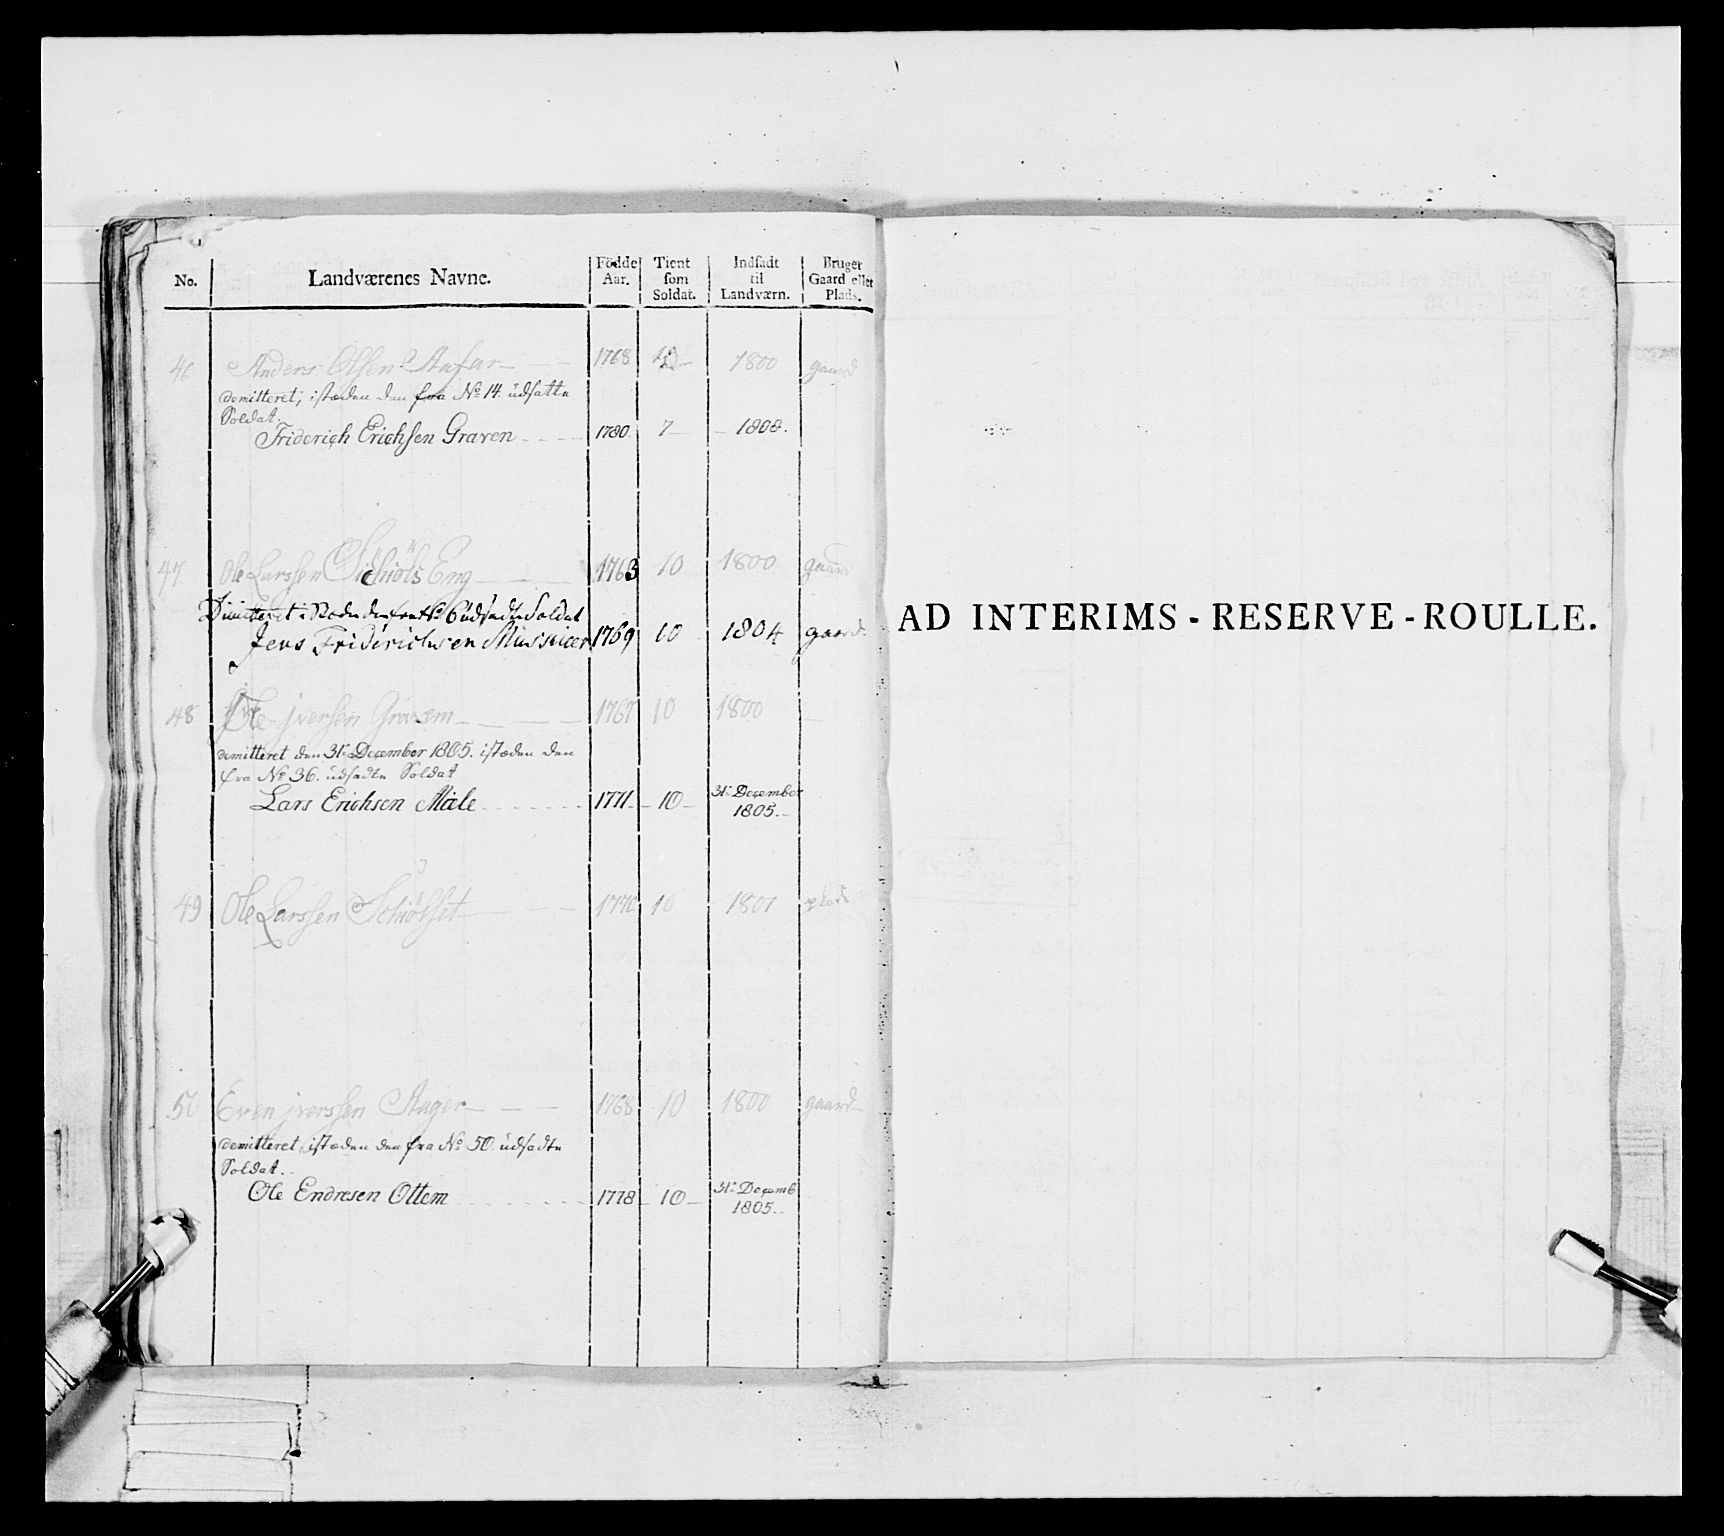 No. Landværenes Navne. Födde Aar. Tient som Soldat. Indsadt til Landværn. Bruger Gaard eller Plads.
46 Anders Olsen 1768 1800 gaard
demitteret, istæden den fra No 14 udsatte
Soldat.
Friderich Erichsen Graven 1780. 7 1808.
47 Ole Larssen Eng 1763 10 1800
Dimitteret i Stæden den fra No 6 udsadte Soldat
Jens Friderichsen 1769 10 1804 gaard.
48 Ole Iversen Gravem 1767 10 1800
demitteret den 31te December 1805. istæden den
fra No 36. udsadte Soldat
Lars Erichsen Mæle 1771 10 31te December 1805.
49 Ole Larssen Schiölset 1770 10 1801 plads
50 Even jverssen Aager 1768 10 1800 gaard
demitteret, istæden den fra No 50. udsadte
Soldat.
Ole Endresen Ottem 1778 10 31te Decemb 1805.
AD INTERIMS - RESERVE - ROULLE.